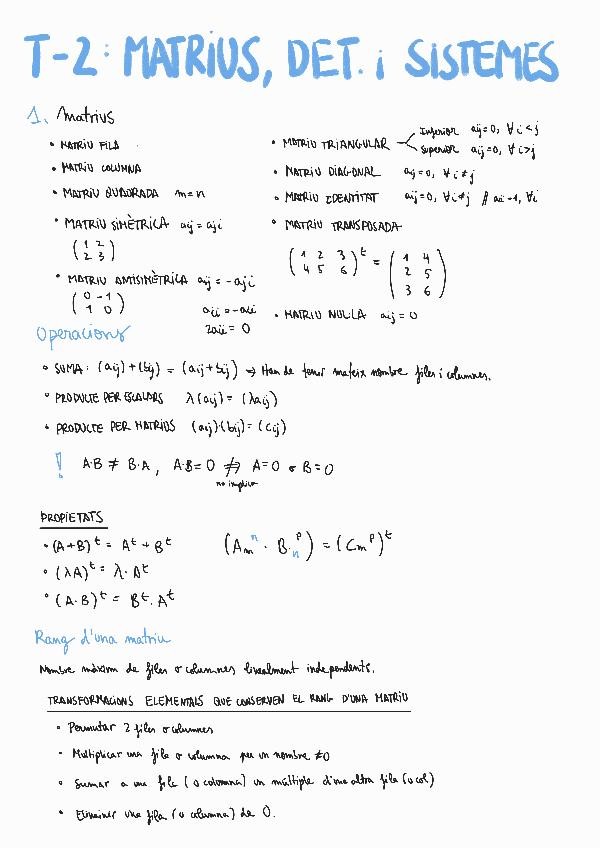 T-2: MATRIUS, DET. i SISTEMES
1. Matrius
• MATRIU FILA
• MATRIU COLUMNA
• MATRIU QUADRADA m=n
• MATRIU SIMÈTRICA aij = aji
(1 2
2 3)
• MATRIU ANTISIMÈTRICA aij = -aji
(0 -1
1 0)
aii = -aii
2aii = 0
• MATRIU TRIANGULAR
Inferior aij=0, ∀ i<j
Superior aij=0, ∀ i>j
• MATRIU DIAGONAL aij=0, ∀ i≠j
• MATRIU IDENTITAT aij=0, ∀ i≠j // aii=1, ∀i
• MATRIU TRANSPOSADA
(1 2 3
4 5 6)^t = (1 4
2 5
3 6)
• MATRIU NUL·LA aij = 0
Operacions
• SUMA: (aij)+(bij) = (aij+bij) → Han de tenir mateix nombre files i columnes.
• PRODUCTE PER ESCALARS λ(aij) = (λaij)
• PRODUCTE PER MATRIUS (aij)·(bij) = (cij)
! A·B ≠ B·A, A·B=0 ⇏ A=0 o B=0
no implica
PROPIETATS
• (A+B)^t = A^t + B^t
• (λA)^t = λ·A^t
• (A·B)^t = B^t·A^t
(A_m^n · B_n^p) = (C_m^p)^t
Rang d'una matriu
Nombre màxim de files o columnes linealment independents.
TRANSFORMACIONS ELEMENTALS QUE CONSERVEN EL RANG D'UNA MATRIU
• Permutar 2 files o columnes
• Multiplicar una fila o columna per un nombre ≠0
• Sumar a una fila (o columna) un múltiple d'una altra fila (o col)
• Eliminar una fila (o columna) de 0.